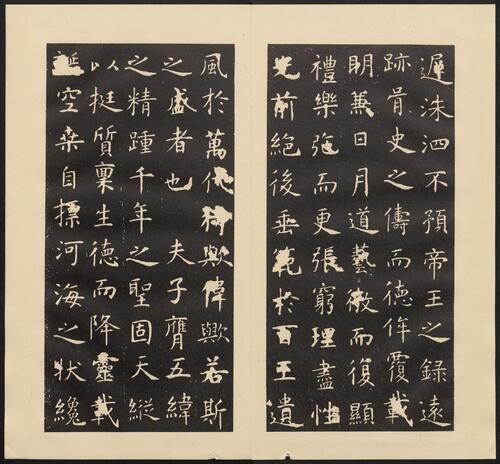 遲洙泗不預帝王之錄遠
跡胥史之儔而德侔覆載
明兼日月道藝微而復顯
禮樂弛而更張窮理盡性
光前絕後垂範於百王遺
風於萬代猗歟偉歟若斯
之盛者也 夫子膺五緯
之精踵千年之聖固天縱
以挺質稟生德而降靈載
誕空桒自摽河海之狀纔